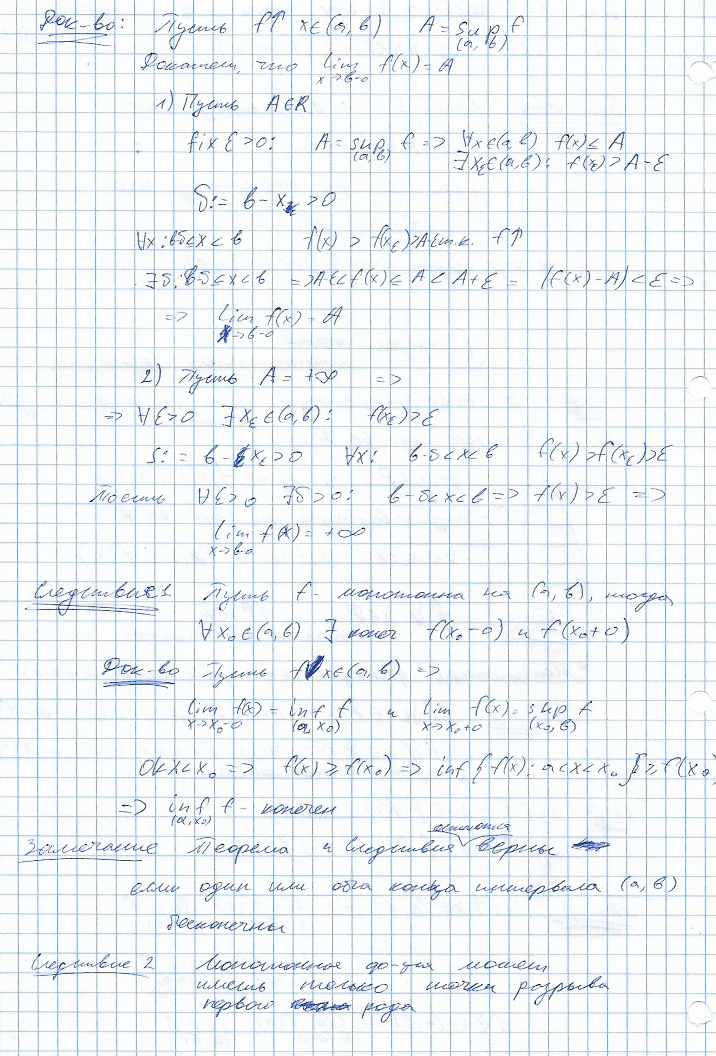 Док-во: Пусть f↑ x∈(a, b) A = sup f
(a, b)
Докажем, что lim f(x) = A
x→b-0
1) Пусть A∈R
fix ε>0: A = sup f => ∀x∈(a,b) f(x) ≤ A
(a,b) ∃x_ε∈(a,b): f(x_ε) > A-ε
δ := b - x_ε > 0
∀x: b-δ<x<b f(x) > f(x_ε)>A-ε т.к. f↑
∃δ: b-δ<x<b => A-ε<f(x) ≤ A < A+ε = |f(x)-A| < ε =>
=> lim f(x) = A
x→b-0
2) Пусть A = +∞ =>
=> ∀ε>0 ∃x_ε∈(a,b): f(x_ε)>ε
δ := b - x_ε>0 ∀x: b-δ<x<b f(x)>f(x_ε)>ε
То есть ∀ε>0 ∃δ>0: b-δ<x<b => f(x)>ε =>
lim f(x) = +∞
x→b-0
Следствие 1 Пусть f - монотонна на (a, b), тогда
∀x₀∈(a, b) ∃ конеч f(x₀-0) и f(x₀+0)
Док-во Пусть f↓ x∈(a, b) =>
lim f(x) = inf f и lim f(x) = sup f
x→x₀-0 (a, x₀) x→x₀+0 (x₀, b)
a<x<x₀ => f(x) ≥ f(x₀) => inf {f(x): a<x<x₀} ≥ f(x₀)
=> inf f - конечен
(a, x₀)
Замечание Теорема и следствия остаются верны
если один или оба конца интервала (a, b)
бесконечны
Следствие 2 Монотонная ф-ция может
иметь только точки разрыва
первого рода